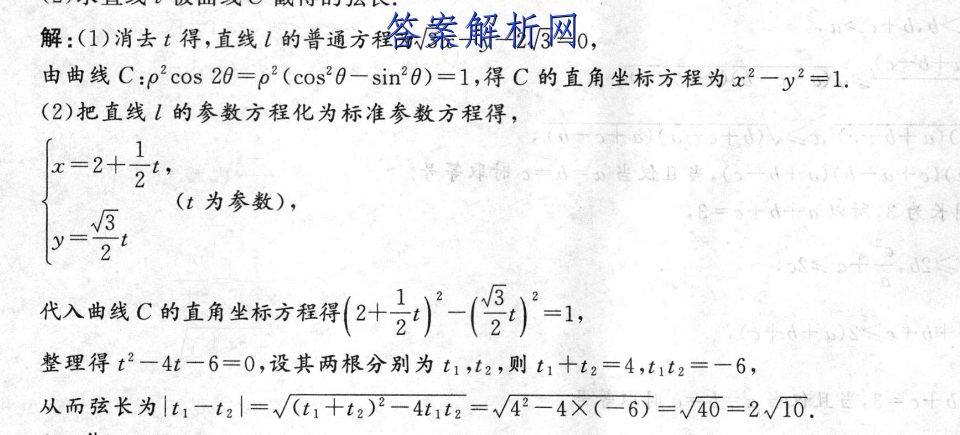 解:(1)消去 t 得,直线 l 的普通方程为√3x-y-2√3=0,
答案解析网
由曲线 C:ρ²cos 2θ=ρ²(cos²θ-sin²θ)=1,得 C 的直角坐标方程为 x²-y²=1.
(2)把直线 l 的参数方程化为标准参数方程得,
{x=2+1/2t,
(t 为参数),
y=√3/2t
代入曲线 C 的直角坐标方程得(2+1/2t)²-(√3/2t)²=1,
整理得 t²-4t-6=0,设其两根分别为 t₁,t₂,则 t₁+t₂=4,t₁t₂=-6,
从而弦长为|t₁-t₂|=√(t₁+t₂)²-4t₁t₂=√4²-4×(-6)=√40=2√10.